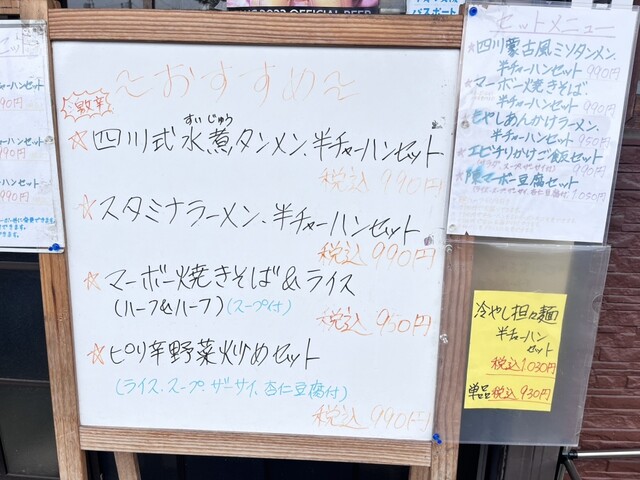 ~おすすめ~
激辛
☆四川式水煮タンメン、半チャーハンセット
すいじゅう
税込990円
☆スタミナラーメン、半チャーハンセット
税込990円
☆マーボー焼きそば&ライス
(ハーフ&ハーフ)(スープ付)
税込950円
☆ピリ辛野菜炒めセット
(ライス、スープ、ザーサイ、杏仁豆腐付)
税込990円
セットメニュー
★四川蒙古風ミソタンメン、
半チャーハンセット 990円
マーボー焼きそば
半チャーハンセット 990円
もやしあんかけラーメン、
半チャーハンセット 950円
エビチリかけご飯セット
990円
マーボー豆腐セット
1050円
冷やし担々麺
半チャーハン
セット
税込1030円
単品税込930円
パスポート